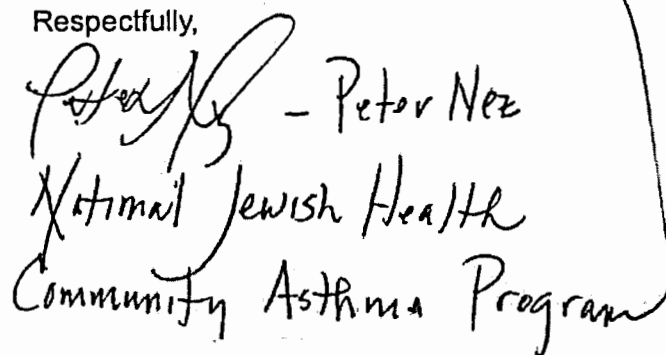 Respectfully,
Peter Nez - Peter Nez
National Jewish Health
Community Asthma Program